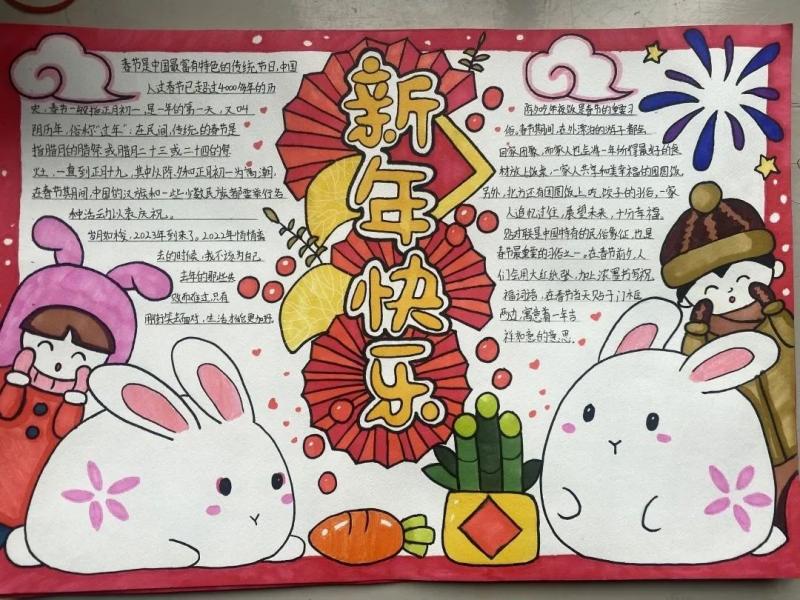 新年快乐
春节是中国最富有特色的传统节日,中国
人过春节已走过4000多年的历
史,春节一般指正月初一,是一年的第一天,又叫
阴历年,俗称“过年”,在民间,传统的春节是
指腊月的腊祭或腊月二十三或二十四的祭
灶,一直到正月十九,其中以除夕和正月初一为高潮,
在春节期间,中国的汉族和一些少数民族都要举行各
种活动以表庆祝。
岁月如梭,2023年到来了。2022年悄悄离
去的时候,我不该为自己
去年的那些失
败而难过,只有
用微笑去面对,生活才能更加好。
除夕吃年夜饭是春节的重要习
俗,春节期间,在外漂泊的游子都要
回家团聚,而家人也会将一年所得最好的食
材放上饭桌,一家人共享和美幸福的团圆饭。
另外,北方还有团圆饭上吃饺子的习俗。一家
人追忆过往,展望未来,十分幸福。
贴对联是中国特有的民俗象征,也是
春节最重要的习俗之一。在春节前夕,人
们会用大红纸张,加上浓墨书写祝
福词语,在春节当天贴于门框
两边,寓意着一年吉
祥和意的意思